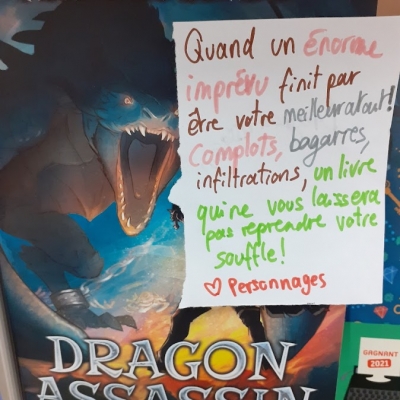 Quand un Énorme
imprévu finit par
être votre meilleur atout!
Complots, bagarres,
infiltrations, un livre
qui ne vous laissera
pas reprendre votre
souffle!
♡ Personnages
DRAGON
ASSASSIN
GAGNANT
2021